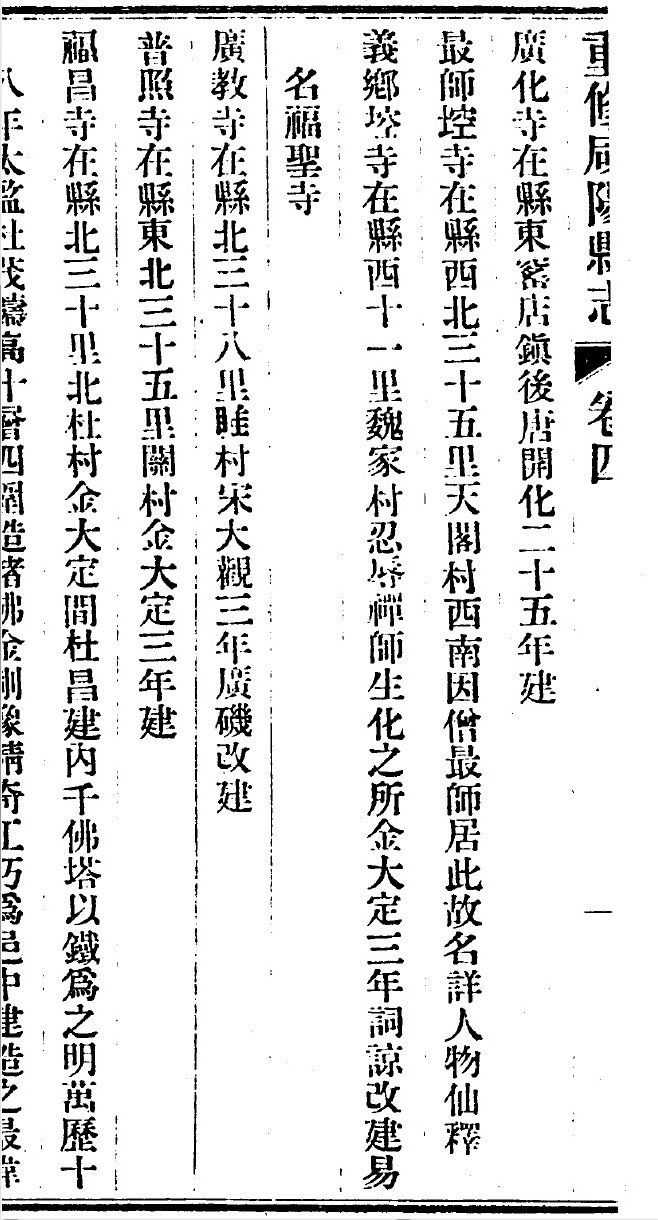 重修咸陽縣志 卷四 一
廣化寺在縣東窰店鎮後唐開化二十五年建
最師埪寺在縣西北三十五里天閣村西南因僧最師居此故名詳人物仙釋
義鄉埪寺在縣西十一里魏家村忍辱禪師生化之所金大定三年詞諒改建易
名福聖寺
廣教寺在縣北三十八里雎村宋大觀三年廣磯改建
普照寺在縣東北三十五里關村金大定三年建
福昌寺在縣北三十里北杜村金大定間杜昌建內千佛塔以鐵爲之明萬歷十
八年太監杜茂鑄高十層四圍造諸佛金剛像精奇工巧爲邑中建造之最